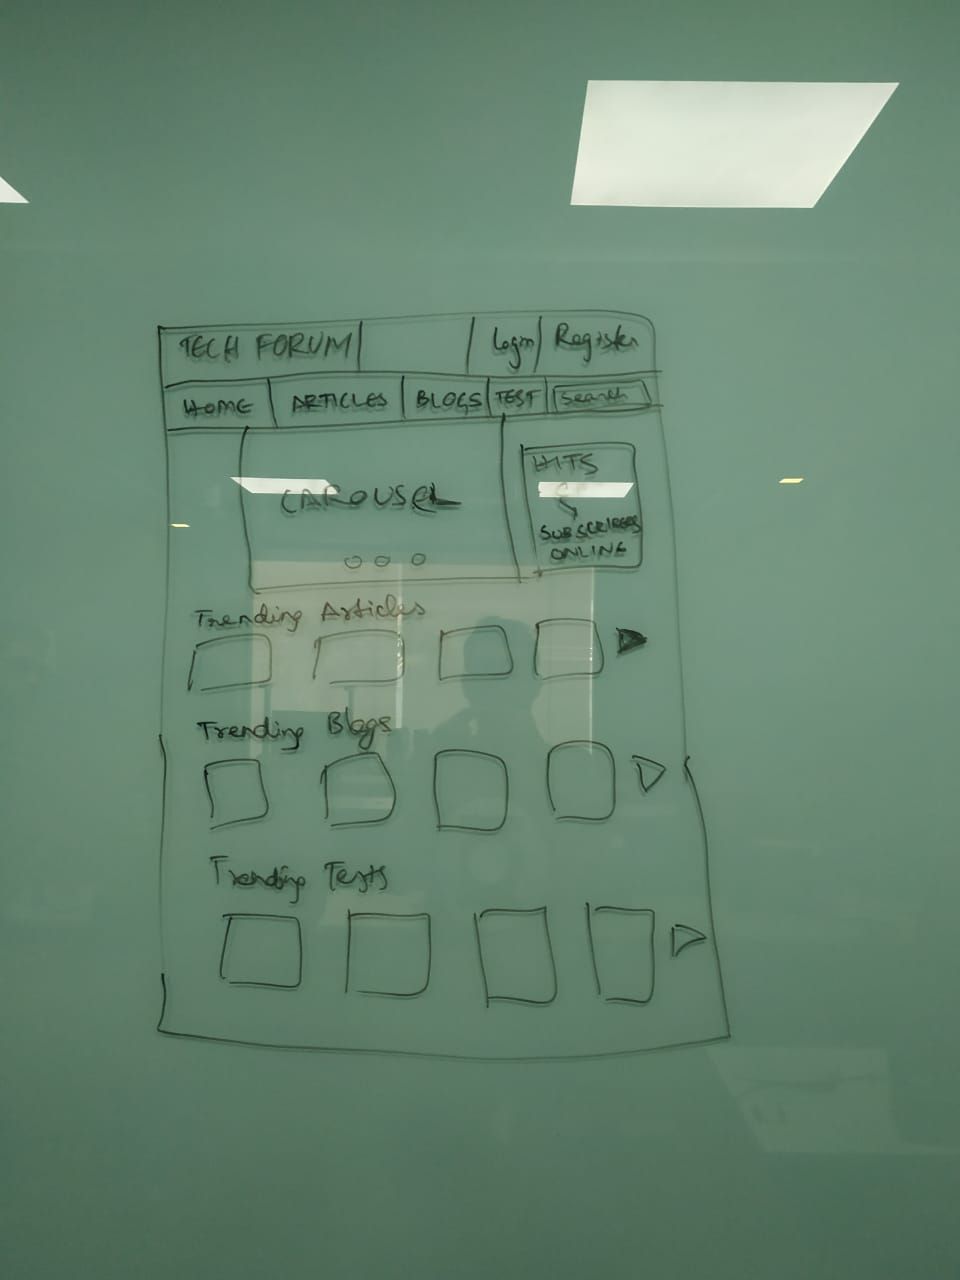 TECH FORUM Login Register
HOME ARTICLES BLOGS TEST Search
CAROUSEL
HITS
SUBSCRIBERS
ONLINE
Trending Articles
Trending Blogs
Trending Tests